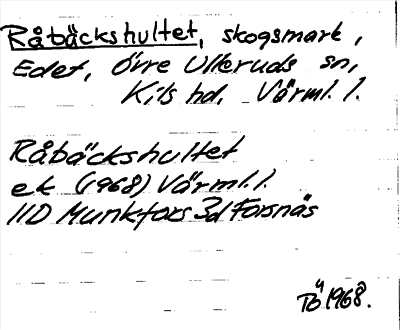 Råbäckshultet, skogsmark,
Edet, Övre Ulleruds sn,
Kils hd, Värml. l.
Råbäckshultet
ek (1968) Värml. l.
11D Munkfors 3d Forsnäs
TÖ 1968.